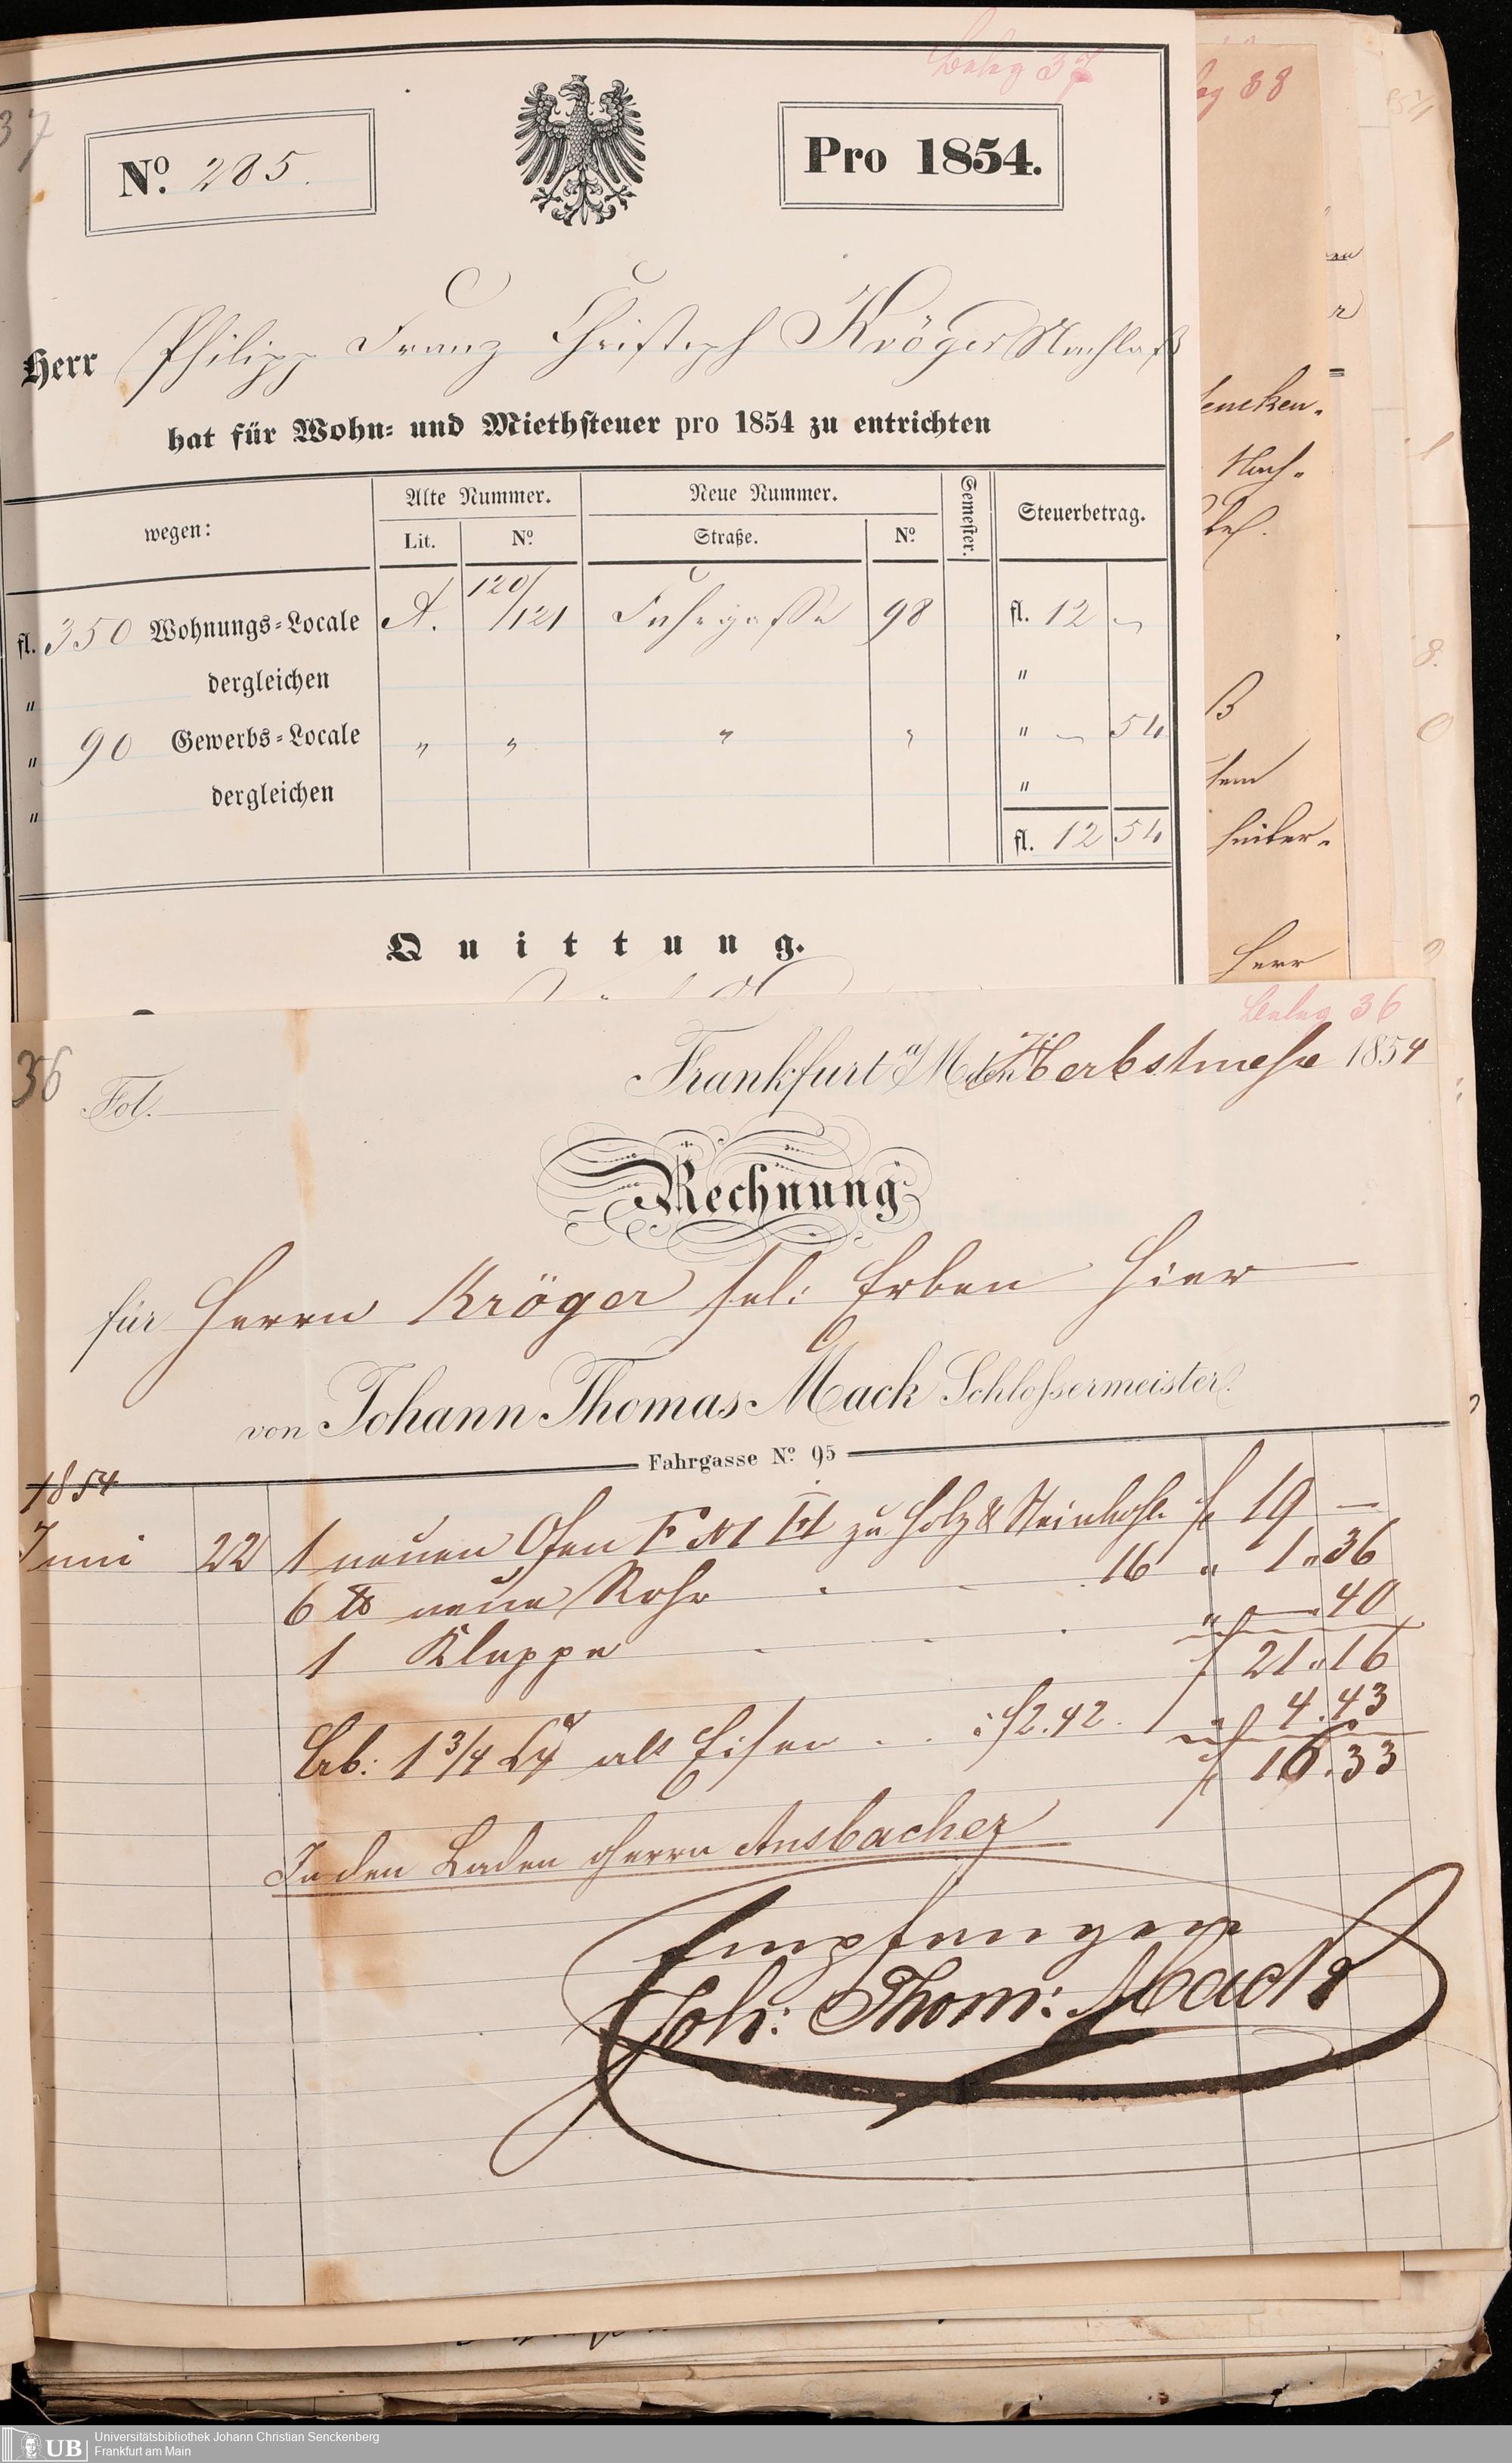 Beleg 37
37
No. 285.
Pro 1854.
Herr Philipp Franz Christoph Kröger Nachlaß
hat für Wohn- und Miethsteuer pro 1854 zu entrichten
wegen: Alte Nummer. Neue Nummer. Semester. Steuerbetrag.
Lit. No. Straße. No.
fl. 350 Wohnungs-Locale A. 120/121 Fahrgasse 98 fl. 12 –
" dergleichen "
" 90 Gewerbs-Locale " " " " " – 54
" dergleichen "
fl. 12 54
Quittung.
88
Nach-
Herr
Beleg 36
36
Fol.
Frankfurt a/M. den Herbstmesse 1854
Rechnung
für Herrn Kröger sel: Erben Hier
von Johann Thomas Mack Schlossermeister.
Fahrgasse No. 95
1854
Juni 22 1 neuen Ofen zu Holz & Steinkohl. f 19 —
6 ℔ neue Rohr 16 " 1 " 36
1 Klappe " — . 40
f 21 " 16
1 3/4 alt Eisen . . : f 2.42. 4.43
f 16.33
In den Laden Herrn Ansbacher
Empfangen
Joh: Thom: Mack
UB Universitätsbibliothek Johann Christian Senckenberg
Frankfurt am Main